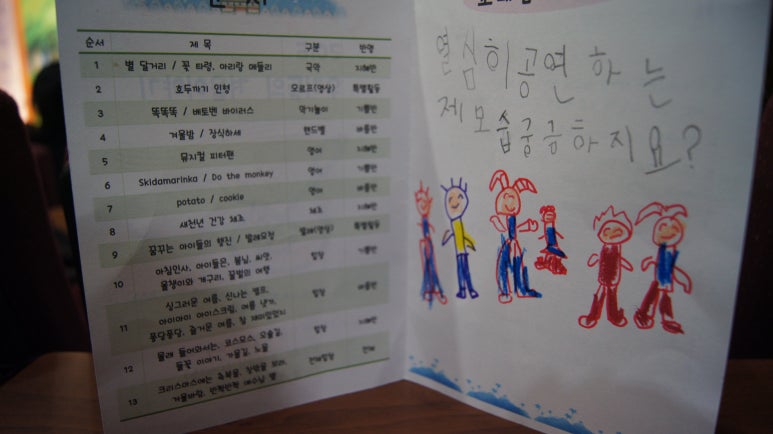 순서 제 목 구분 반명
1 별 달거리 / 꽃 타령, 아리랑 메들리 국악 지혜반
2 호두까기 인형 오르프(영상) 특별활동
3 똑똑똑 / 베토벤 바이러스 악기놀이 기쁨반
4 겨울밤 / 장식하세 핸드벨 바름반
5 뮤지컬 피터팬 영어 지혜반
6 Skidamarinka / Do the monkey 영어 기쁨반
7 potato / cookie 영어 바름반
8 새천년 건강 체조 체조 지혜반
9 꿈꾸는 아이들의 행진 / 발레요정 발레(영상) 특별활동
10 아침인사, 아이들은, 봄님, 씨앗, 합창 기쁨반
올챙이와 개구리, 꿀벌의 여행
11 싱그러운 여름, 신나는 합창 바름반
아이아이 아이스크림, 여름 냇가,
퐁당퐁당, 즐거운 여름, 참 재미있었지
12 몰래 들어와서는, 코스모스, 오솔길, 합창 지혜반
들꽃 이야기, 가을길, 노을
13 크리스마스에는 축복을, 전체합창 전체
겨울바람, 반짝반짝 예수님 별
열심히 공연 하 는
제 모습 궁금하지요?